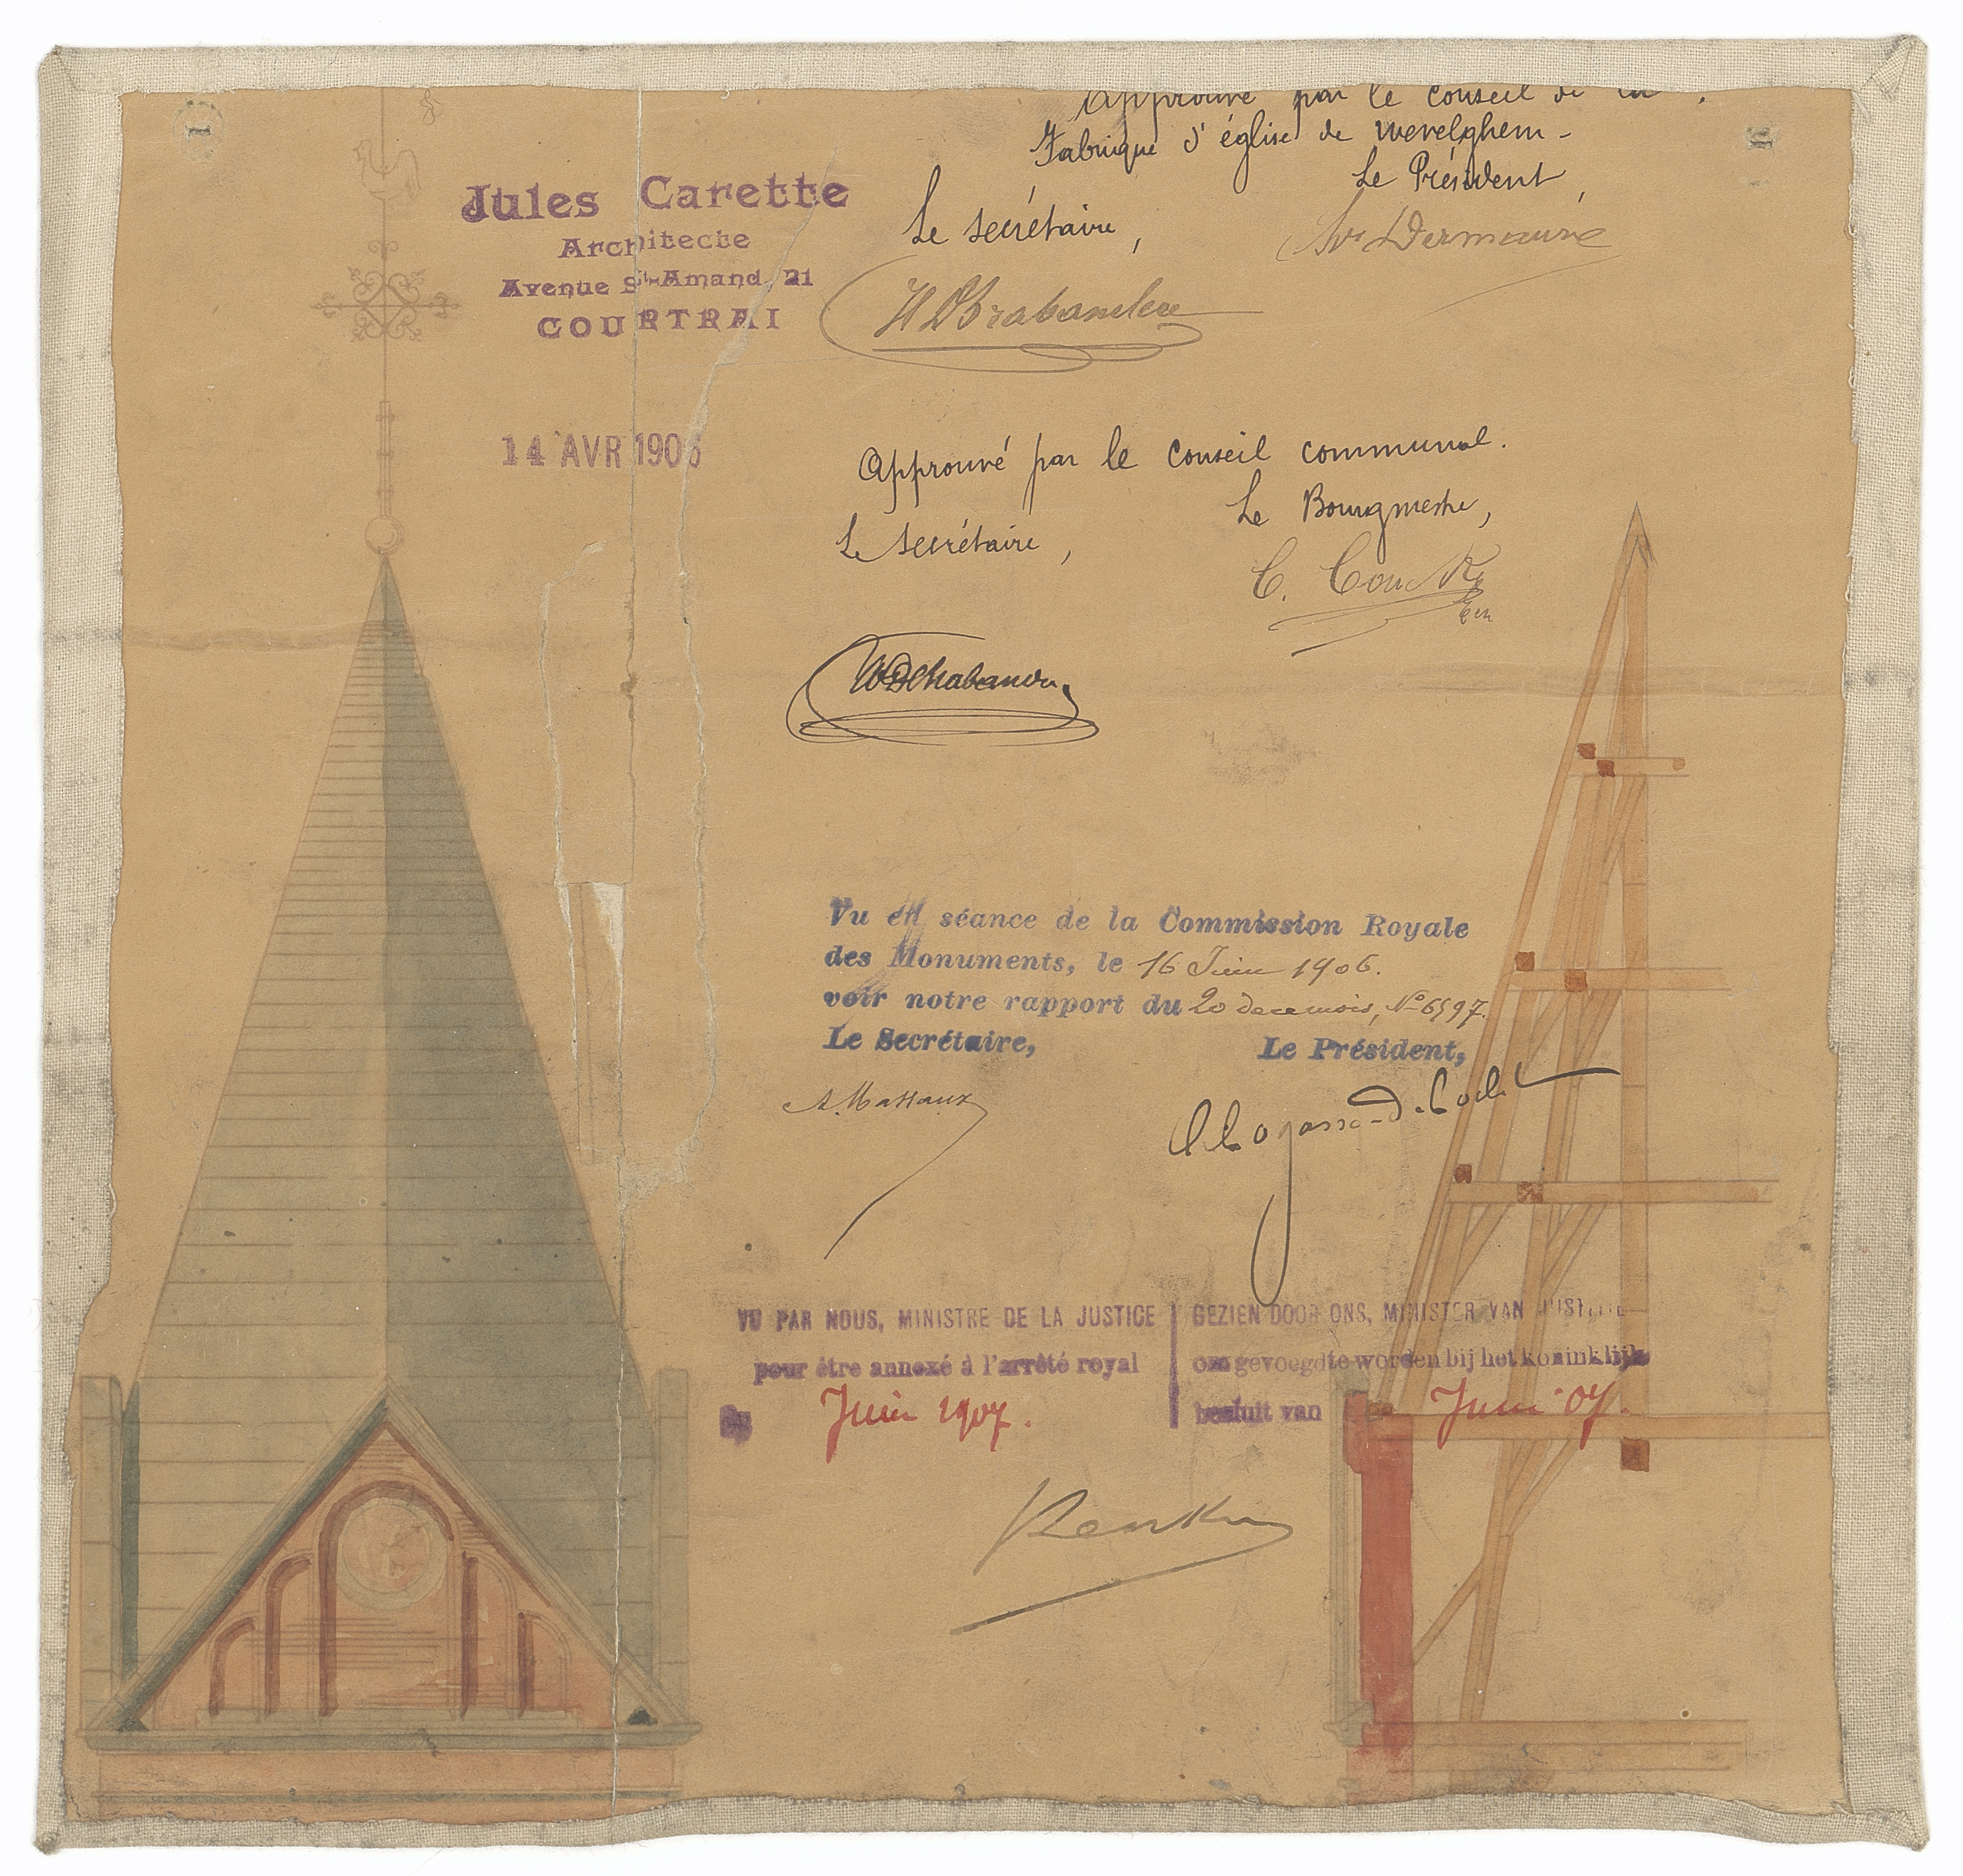 Approuvé par le conseil de la
Fabrique d'église de Wevelghem -
Le Président,
Le secrétaire,
Jules Carette
Architecte
Avenue St-Amand, 21
COURTRAI
14 AVR 1906
Approuvé par le conseil communal.
Le Bourgmestre,
Le secrétaire,
Vu en séance de la Commission Royale
des Monuments, le 16 Juin 1906.
voir notre rapport du 20 de ce mois, No 6597.
Le Secrétaire,
Le Président,
A. Massaux
VU PAR NOUS, MINISTRE DE LA JUSTICE
pour être annexé à l'arrêté royal
Juin 1907.
GEZIEN DOOR ONS, MINISTER VAN JUSTITIE
om gevoegd te worden bij het koninklijk
besluit van Juni 07.
Renkin